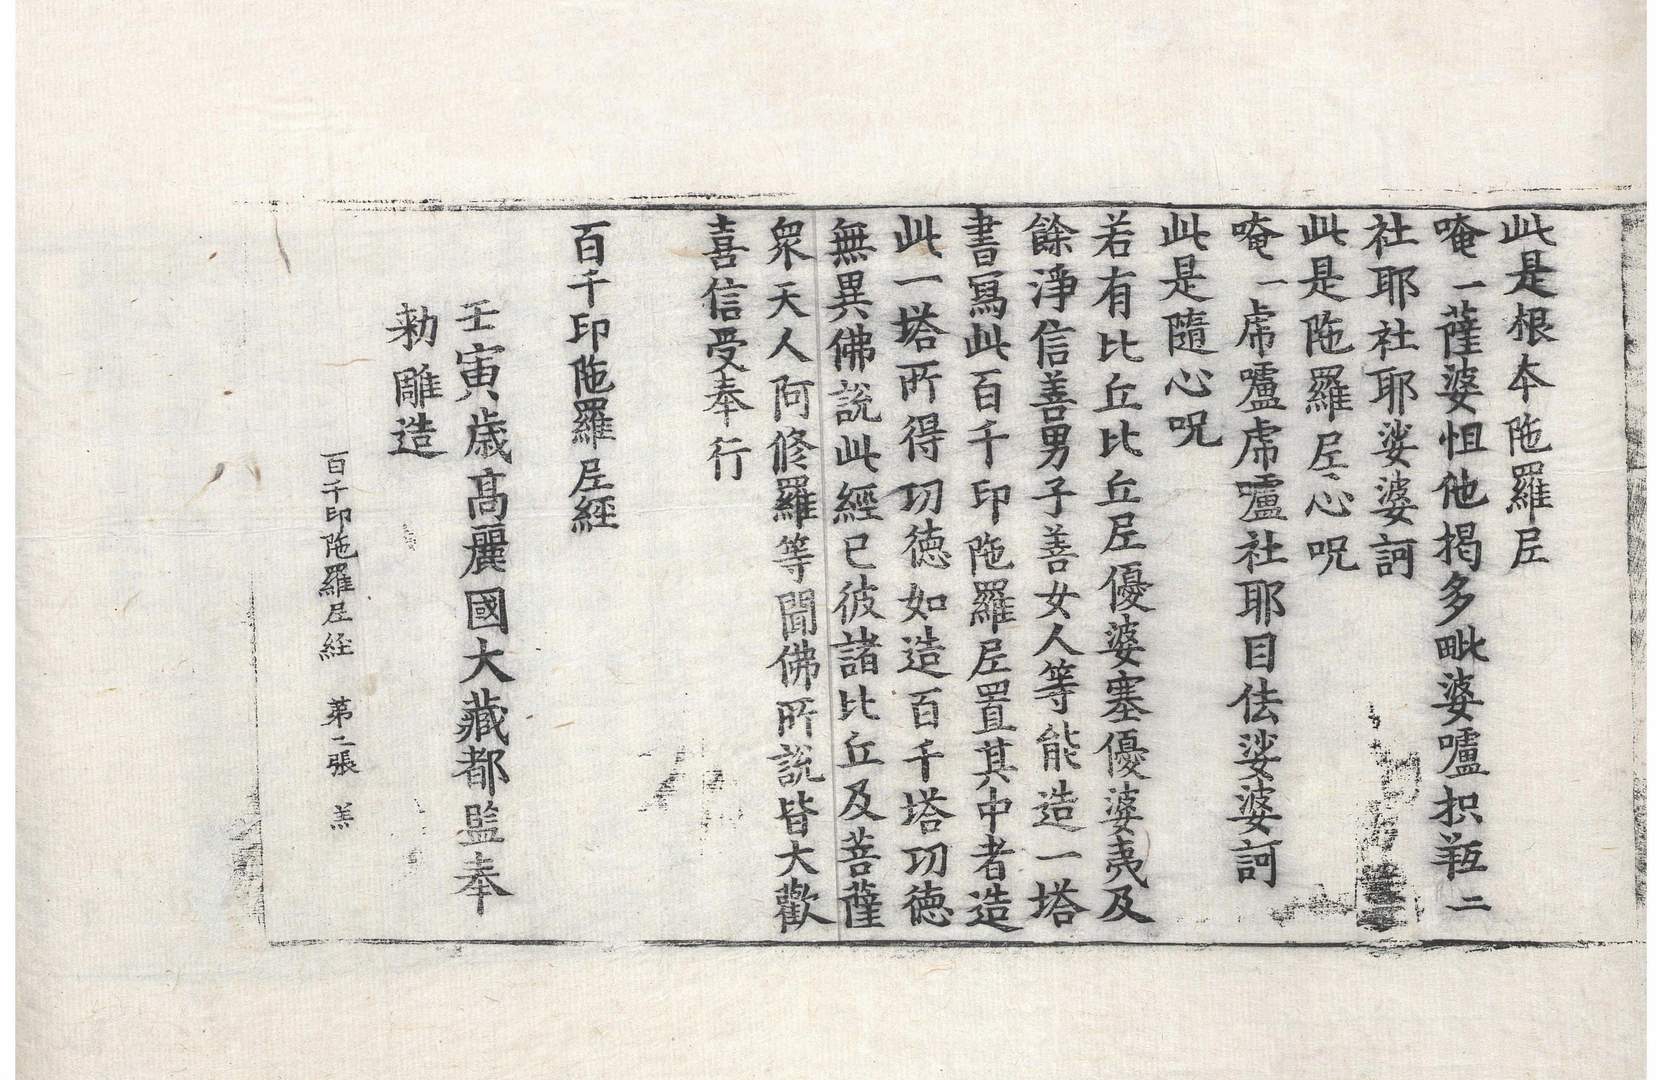 此是根本陁羅尼
唵一薩婆怛他揭多毗婆嚧枳羝二
社耶社耶娑婆訶
此是陁羅尼心呪
唵一虎嚧虎嚧社耶目佉娑婆訶
此是隨心呪
若有比丘比丘尼優婆塞優婆夷及
餘淨信善男子善女人等能造一塔
書寫此百千印陁羅尼置其中者造
此一塔所得功德如造百千塔功德
無異佛說此經已彼諸比丘及菩薩
衆天人阿修羅等聞佛所說皆大歡
喜信受奉行
百千印陁羅尼經
壬寅歲高麗國大藏都監奉
勅雕造
百千印陁羅尼経 第二張 羔